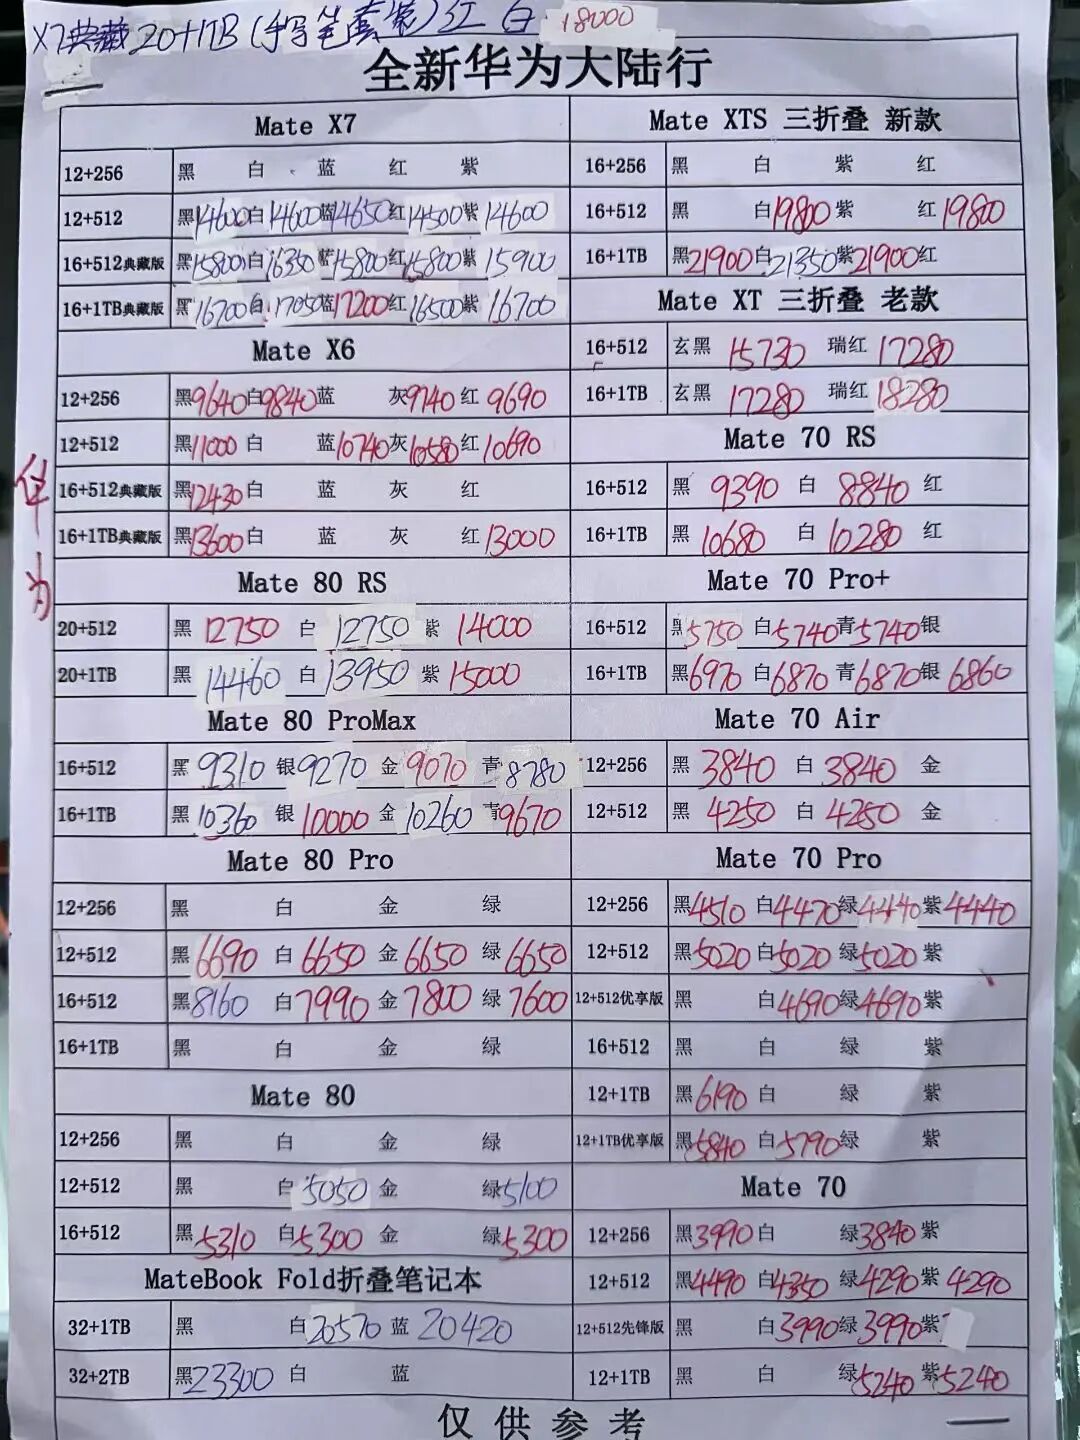 X7典藏 20+1TB(手写笔套装)红 白 18000
全新华为大陆行
华为
Mate X7
12+256 黑 白 蓝 红 紫
12+512 黑14600 白14600 蓝14650 红14500 紫14600
16+512典藏版 黑15800 白16350 蓝15800 红15800 紫15900
16+1TB典藏版 黑16700 白17050 蓝17200 红16500 紫16700
Mate X6
12+256 黑9640 白9840 蓝 灰9740 红9690
12+512 黑11000 白 蓝10740 灰10580 红10690
16+512典藏版 黑12430 白 蓝 灰 红
16+1TB典藏版 黑13600 白 蓝 灰 红13000
Mate 80 RS
20+512 黑12750 白12750 紫14000
20+1TB 黑14460 白13950 紫15000
Mate 80 ProMax
16+512 黑9310 银9270 金9070 青8780
16+1TB 黑10360 银10000 金10260 青9670
Mate 80 Pro
12+256 黑 白 金 绿
12+512 黑6690 白6650 金6650 绿6650
16+512 黑8160 白7990 金7800 绿7600
16+1TB 黑 白 金 绿
Mate 80
12+256 黑 白 金 绿
12+512 黑 白5050 金 绿5100
16+512 黑5310 白5300 金 绿5300
MateBook Fold折叠笔记本
32+1TB 黑 白20570 蓝20420
32+2TB 黑23300 白 蓝
Mate XTS 三折叠 新款
16+256 黑 白 紫 红
16+512 黑 白19800 紫 红19800
16+1TB 黑21900 白21350 紫21900 红
Mate XT 三折叠 老款
16+512 玄黑 15730 瑞红 17280
16+1TB 玄黑 17280 瑞红 18280
Mate 70 RS
16+512 黑 9390 白 8840 红
16+1TB 黑 10680 白 10280 红
Mate 70 Pro+
16+512 黑5750 白5740 青5740 银
16+1TB 黑6970 白6870 青6870 银6860
Mate 70 Air
12+256 黑 3840 白 3840 金
12+512 黑 4250 白 4250 金
Mate 70 Pro
12+256 黑4510 白4470 绿4440 紫4440
12+512 黑5020 白5020 绿5020 紫
12+512优享版 黑 白4690 绿4690 紫
16+512 黑 白 绿 紫
12+1TB 黑6190 白 绿 紫
12+1TB优享版 黑5840 白5790 绿 紫
Mate 70
12+256 黑3990 白 绿3840 紫
12+512 黑4490 白4350 绿4290 紫4290
12+512先锋版 黑 白3990 绿3990 紫
12+1TB 黑 白 绿5240 紫5240
仅供参考